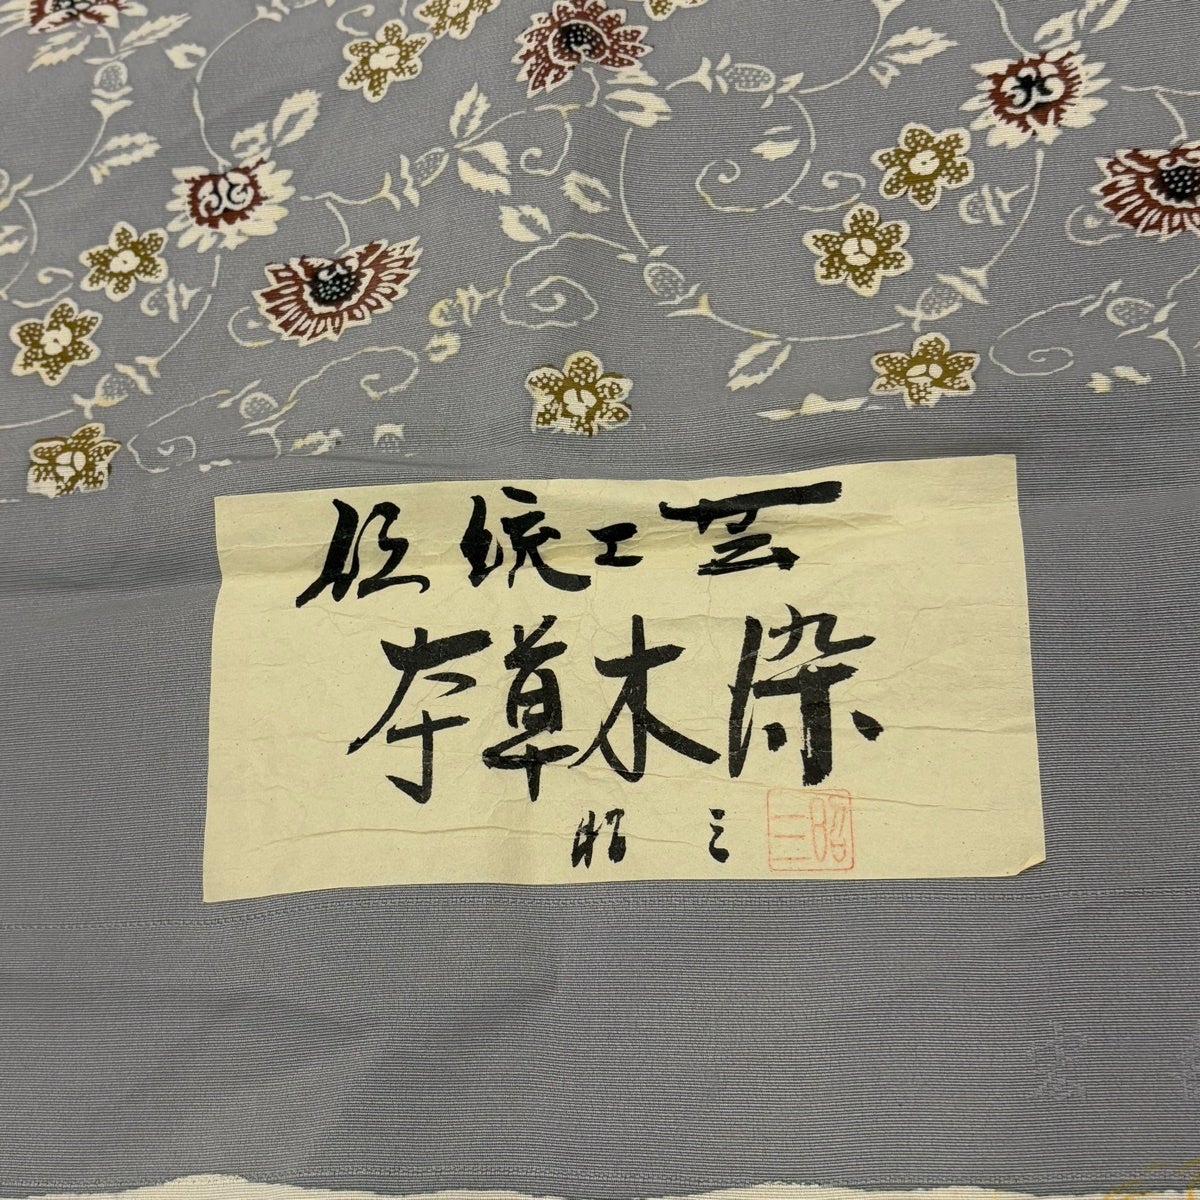 伝統工芸
本草木染
昭三
昭三